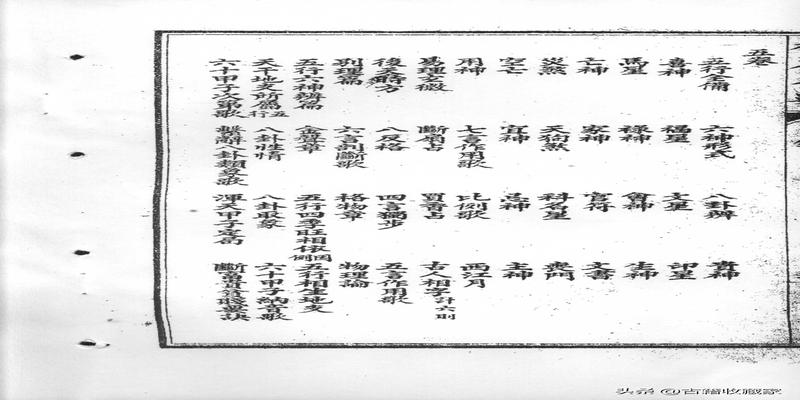 五卷
五行全備 六神形式 八卦辨 青神
喜神 福星 文星 印星
馬星 祿神 會神 生神
亡神 家神 官符 文書
災煞 天狗煞 科名星 喪門
空亡 宜神 忌神 主神
用神 七言作用歌 比例歌 西江月
易理玄微 斷扇占 買香占 古人相字計六則
後天時方 八反格 四言獨步 五言作用歌
別理篇 六言剖斷歌 格物章 物理論
五行六神辨篇 金聲章 五行四季旺相休囚例 五行相生地支
天干地支所屬五行 八卦性情 八卦取象 六十甲子納音歌
六十甲子次第歌 製解八卦類象歌 渾天甲子定局 斷富貴貧賤要訣
头条 @古籍收藏家